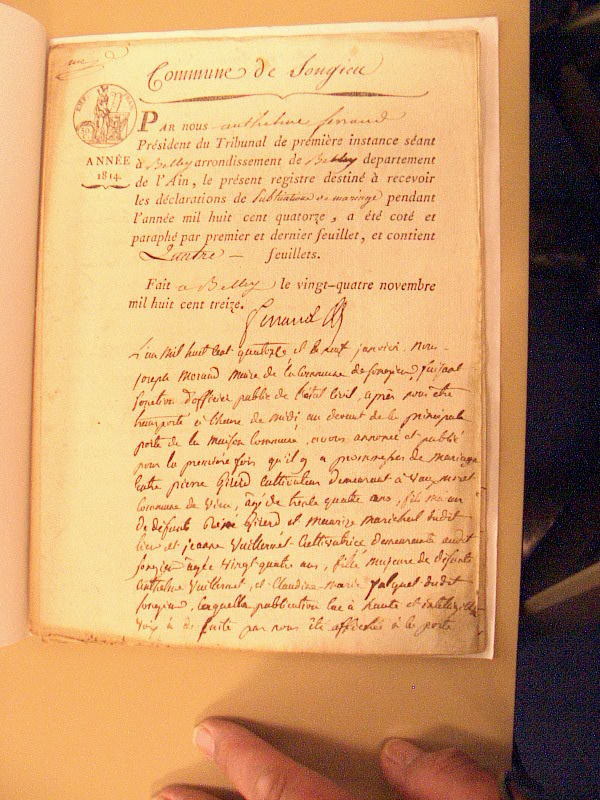 Commune de Songieu
ANNÉE
1814.
PAR nous anthelme ferrand
Président du Tribunal de première instance séant
à Belley arrondissement de Belley departement
de l'Ain, le présent registre destiné à recevoir
les déclarations de Publications de mariage pendant
l'année mil huit cent quatorze, a été coté et
paraphé par premier et dernier feuillet, et contient
Quatre feuillets.
Fait a Belley le vingt-quatre novembre
mil huit cent treize.
ferrand
L'an mil huit cent quatorze et le neuf janvier nous
joseph Morand Maire de la Commune de Songieu, faisant
fonction d'officier public de l'état Civil, après nous être
transporté à l'heure de Midi au devant de la principale
porte de la Maison Commune, avons annoncé et publié
pour la première fois qu'il y a promesse de mariage
Entre pierre Girerd Cultivateur Demeurant à
Commune de Vieu, âgé de trente quatre ans, fils majeur
De défunt Girerd et maurize marechal dudit
lieu et jeanne Vuillermet Cultivatrice Demeurante audit
songieu âgée vingt quatre ans, fille majeure de défunts
anthelme Vuillermet, et Claudine Marie dudit
songieu, laquelle publication lue à haute et intelligible
voix à de suite par nous été affichée à la porte